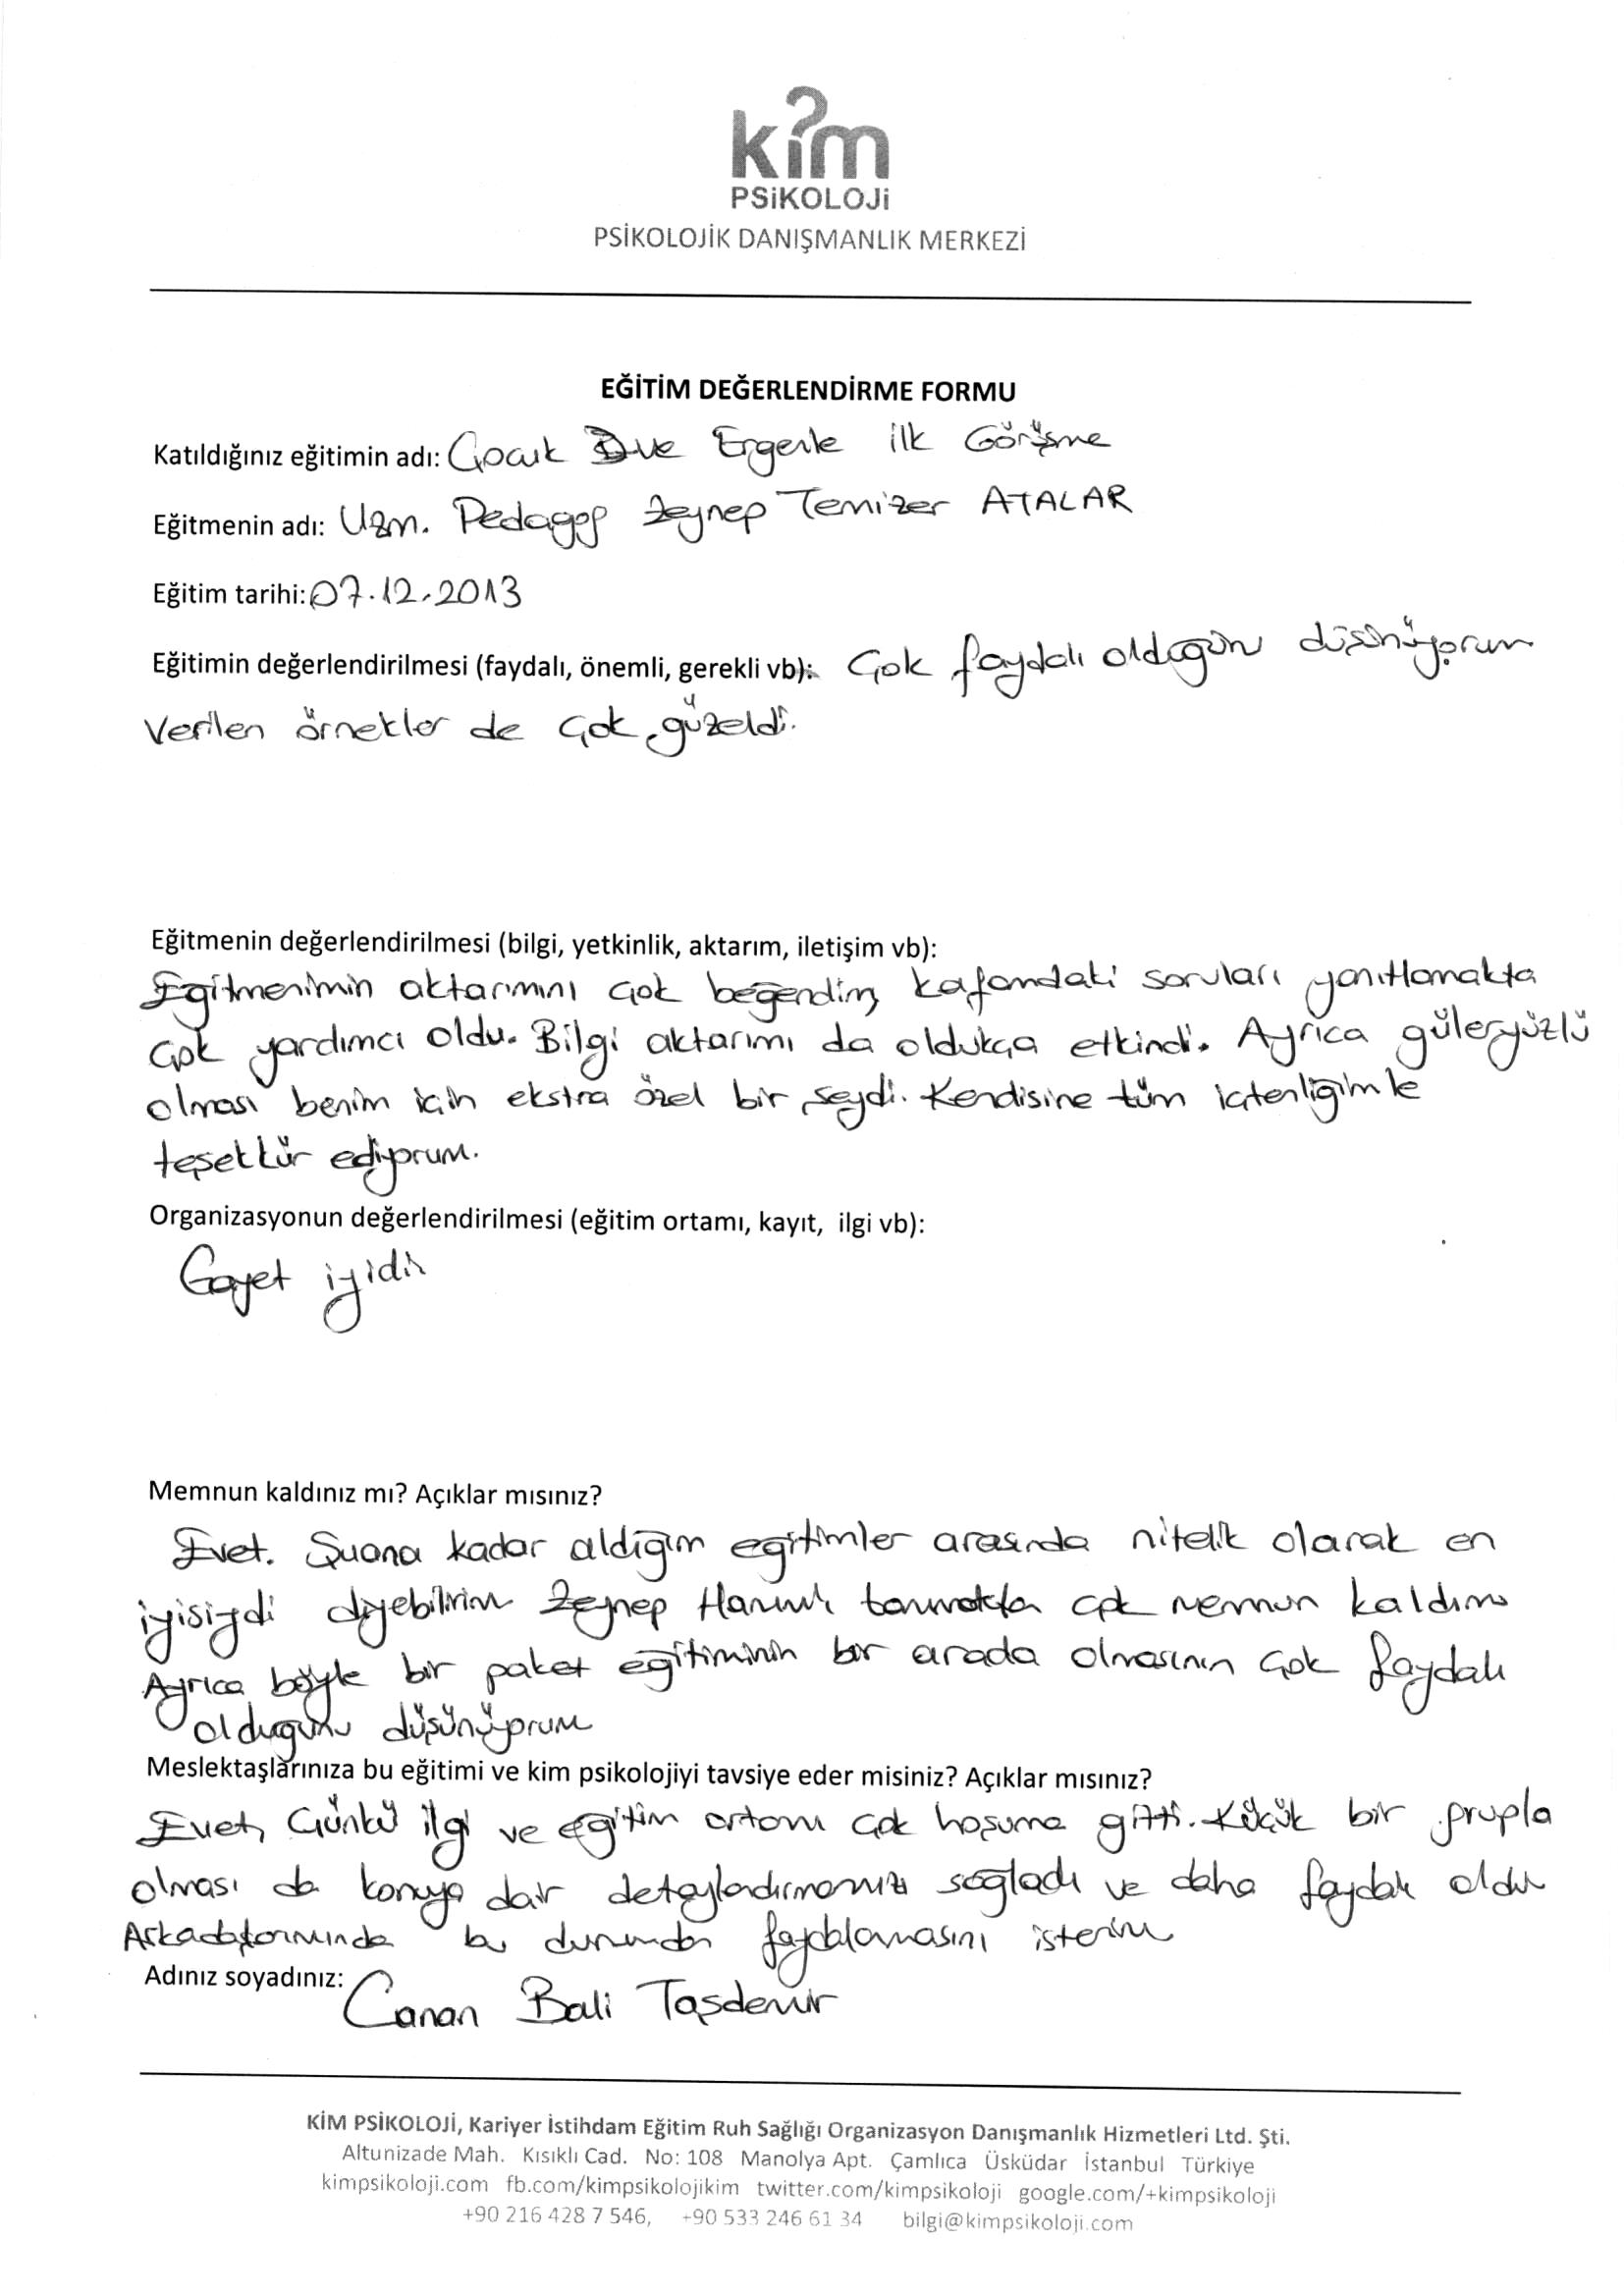 kim
PSiKOLOJi
PSİKOLOJİK DANIŞMANLIK MERKEZİ
EĞİTİM DEĞERLENDİRME FORMU
Katıldığınız eğitimin adı: Çocuk ve Ergenle ilk Görüşme
Eğitmenin adı: Uzm. Pedagog Zeynep Temizer ATALAR
Eğitim tarihi: 07.12.2013
Eğitimin değerlendirilmesi (faydalı, önemli, gerekli vb): Çok faydalı olduğun düşünüyorum
Verilen örnekler de çok güzeldi.
Eğitmenin değerlendirilmesi (bilgi, yetkinlik, aktarım, iletişim vb):
Eğitmenimin aktarımını çok beğendim, kafamdaki soruları yanıtlamakta
çok yardımcı oldu. Bilgi aktarımı da oldukça etkindi. Ayrıca güleryüzlü
olması benim için ekstra özel bir şeydi. Kendisine tüm içtenliğimle
teşekkür ediyorum.
Organizasyonun değerlendirilmesi (eğitim ortamı, kayıt, ilgi vb):
Gayet iyidi
Memnun kaldınız mı? Açıklar mısınız?
Evet. Şuana kadar aldığım eğitimler arasında nitelik olarak en
iyisiydi diyebilirim Zeynep Hanımı tanımakta çok memnun kaldım
Ayrıca böyle bir paket eğitiminin bir arada olmasının çok faydalı
olduğunu düşünüyorum
Meslektaşlarınıza bu eğitimi ve kim psikolojiyi tavsiye eder misiniz? Açıklar mısınız?
Evet, Çünkü ilgi ve eğitim ortamı çok hoşuma gitti. Küçük bir grupla
olması da konuya dair detaylandırmamızı sağladı ve daha faydalı oldu
Arkadaşlarımında bu durumdan faydalamasını isterim
Adınız soyadınız: Canan Bali Taşdemir
KİM PSİKOLOJİ, Kariyer İstihdam Eğitim Ruh Sağlığı Organizasyon Danışmanlık Hizmetleri Ltd. Şti.
Altunizade Mah. Kısıklı Cad. No: 108 Manolya Apt. Çamlıca Üsküdar İstanbul Türkiye
kimpsikoloji.com fb.com/kimpsikolojikim twitter.com/kimpsikoloji google.com/+kimpsikoloji
+90 216 428 7 546, +90 533 246 61 34 bilgi@kimpsikoloji.com